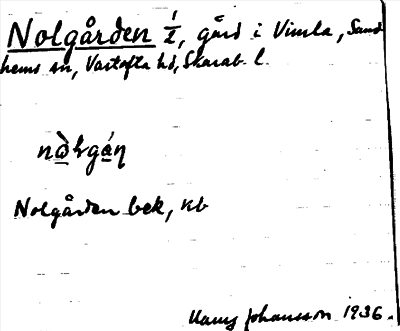 Nolgården 1/2, gård i Vimla, Sand
hems sn, Vartofta hd, Skarab. l.
Nolgården bek, kb
Johansson 1936.